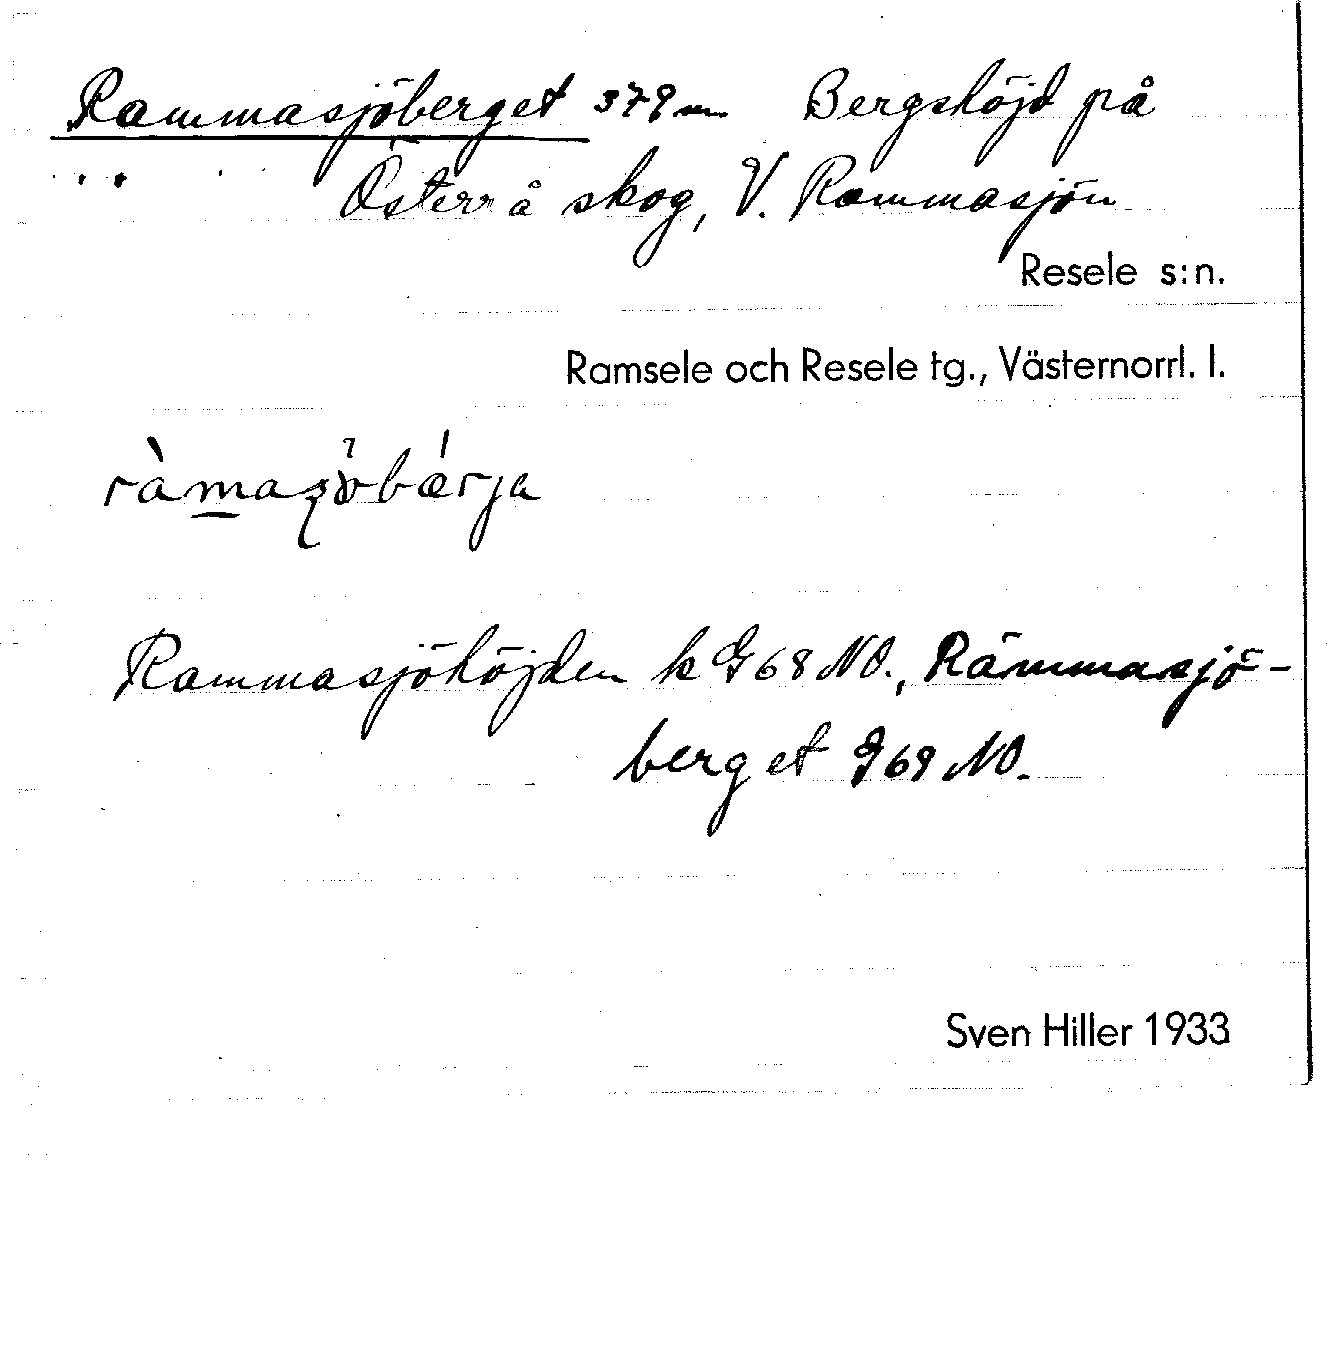 Rammasjöberget 379 m Bergshöjd på
Österrå skog, V. Rammasjön
Resele s:n.
Ramsele och Resele tg., Västernorrl. l.
Rammasjöhöjden k G 68 NO., Rämmasjö-
berget G 69 NO.
Sven Hiller 1933